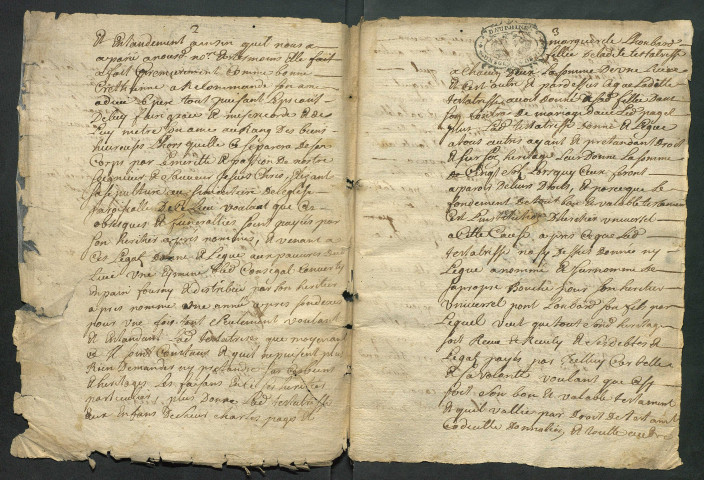 2
Et Entandement ainsin quil nous a
aparu a nous no.re Et tesmoins Elle fait
a fait premierement Comme bonne
Crestienne a Recommandé son ame
a dieu le pere tout puissant
De luy faire grace Et misericorde Et de
luy metre son ame au Rang des biens
heureuses Lhors quelle se separera de son
Corps par le merite Et passion de nostre
seigneur Et sauveur Jesus Christ, Elizant
sa sepulture au simentiere de leglise
parroissialle de lieu voulant que ses
obseques Et funerallies soint payées par
son heritier apres nommée, Et venant a
ses legat donne Et legue aux pauvres dud
Lieu Une Esmine bled Consegal Converty
en pain Et distribuée par son heritier
apres nommé une année apres son deces
pour Une fois tant seulement voulant
Et Entandant Lad testatrisse que moyenant
ce ils soint Contans Et quils ne puissent plus
Rien Demander ny pretandre sur ses biens
Et heritages Les faisans ses heritiers
particuliers, plus Donne Lad testatrisse
aux Enfans De sieur charles pagés Et
3
marguerite Lhonbard
fillie de ladite testatrisse
a chacun Deux La somme De
Et cest outre Et par dessus ce que Ladite
testatrisse avoit Donné a sad fillie Dans
son Contrat de mariage avec Led pagés
plus Lad testatrisse Donne Et Legue
a tous autres ayant Et pretandant Droit
Et sur son heritage Leur Donne La somme
de Cinq sols Lorsquy Ceux feront
aparoir de leurs Droits, Et parce que Le
fondement De tout bon Et valable testament
Est Linstitution D'heretier universel
a cette Cause, apres ce que Lad
testatrisse na sy dessus donnée ny
Legué a nommé Et surnommé de
sa propre Bouche pour son heritier
Universel pont Lonbard son fils par
Lequel veut que tout sond heritage
soit Et ses debtes Et
Legat payés par Icelluy Car telle
Est sa volanthé voulant que cest
soit son bon Et valable testament
Et quil vallie par Droit de testament
Codicille Donnation, Et toutte autre